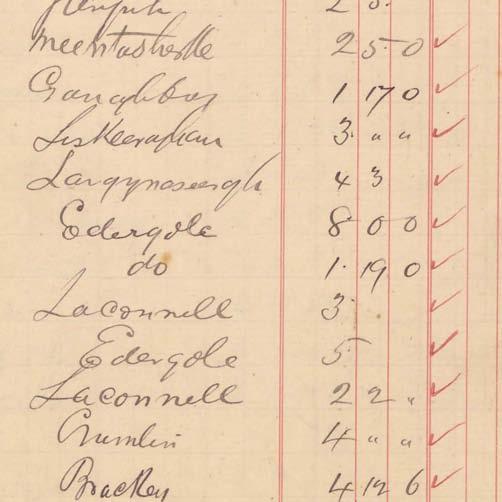 2 5
Meentashesk 2 5 0 ✓
Garughbug 1 17 0 ✓
Liskeeraghan 3 " " ✓
Largynaseeragh 4 3 ✓
Edergole 8 0 0 ✓
do 1 . 19 0 ✓
Laconnell 3 ✓
Edergole 5 ✓
Laconnell 2 2 " ✓
Crumlin 4 " " ✓
Brackey 4 12 6 ✓